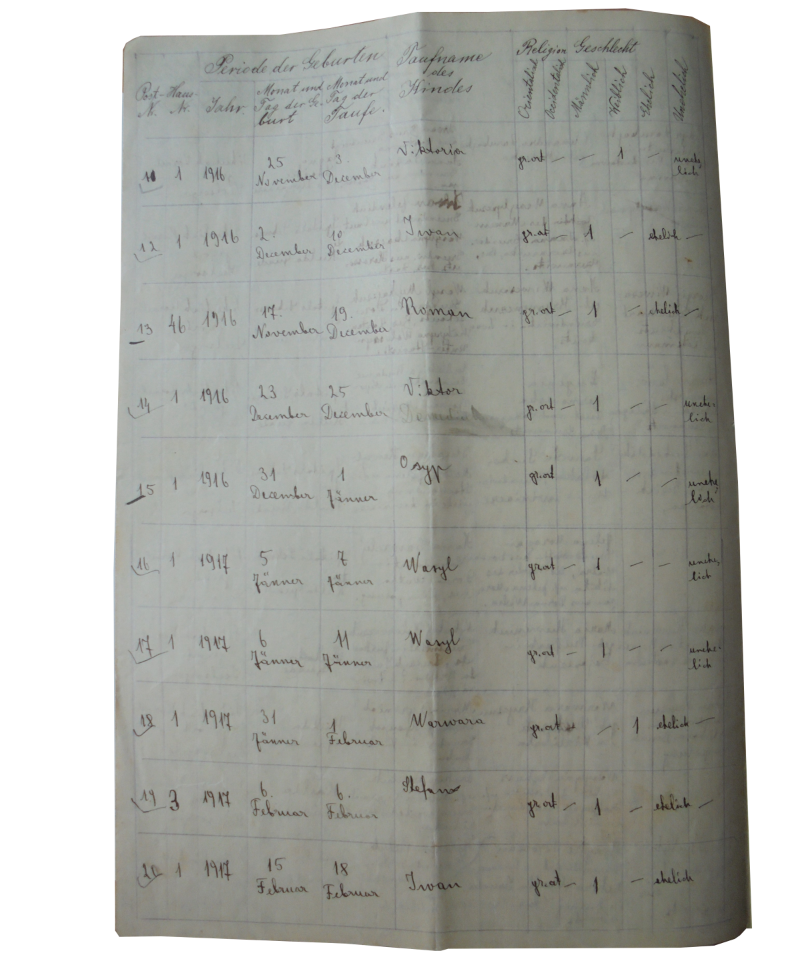 Periode der Geburten Taufname des Kindes Religion Geschlecht
Post- N. Haus- N. Jahr Monat und Tag der Ge- burt Monat und Tag der Taufe. Orientalisch Occidentalisch Männlich Weiblich Ehelich Unehelich
11 1 1916 25 November 3. December Viktoria gr.ort — — 1 — unehe- lich
12 1 1916 2. December 10 December Iwan gr.ort — 1 — ehelich —
13 46 1916 17. November 19. December Roman gr.ort — 1 — ehelich —
14 1 1916 23 December 25 December Viktor gr.ort — 1 — — unehe- lich
15 1 1916 31 December 1 Jänner Osyp gr.ort 1 — — unehe- lich
16 1 1917 5 Jänner 7 Jänner Wasyl gr.ort — 1 — — unehe- lich
17 1 1917 6 Jänner 11 Jänner Wasyl gr.ort — 1 — — unehe- lich
18 1 1917 31 Jänner 1 Februar Warwara gr.ort — — 1 ehelich —
19 3 1917 6. Februar 6. Februar Stefan gr.ort — 1 — ehelich —
20 1 1917 15 Februar 18 Februar Iwan gr.ort — 1 — ehelich